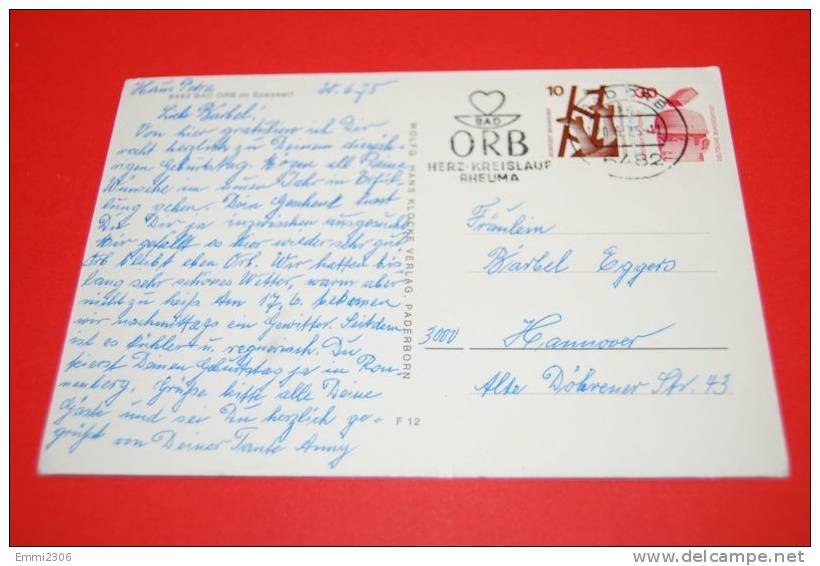 Haus Petra 20.6.75
6482 BAD ORB im Spessart
Liebe Bärbel!
Von hier gratuliere ich Dir
recht herzlich zu Deinem diesjäh-
rigen Geburtstag. Mögen all Deine
Wünsche im neuen Jahr in Erfül-
lung gehen. Dein Geschenk hast
Du Dir ja inzwischen ausgesucht.
Mir gefällt es hier wieder sehr gut.
Orb bleibt eben Orb. Wir hatten bis-
lang sehr schönes Wetter, warm aber
nicht zu heiß. Am 17.6. bekamen
wir nachmittags ein Gewitter. Seitdem
ist es kühler u. regnerisch. Du
feierst Deinen Geburtstag ja in Ron-
nenberg. Grüße bitte alle Deine
Gäste und sei Du herzlich ge-
grüßt von Deiner Tante Anny
WOLFG. HANS KLOCKE VERLAG, PADERBORN
F 12
BAD
ORB
HERZ-KREISLAUF
RHEUMA
10
30
6482
DEUTSCHE BUNDESPOST
Fräulein
Bärbel Eggers
3000 Hannover
Alte Döhrener Str. 43
Emmi2306
www.delcampe.net